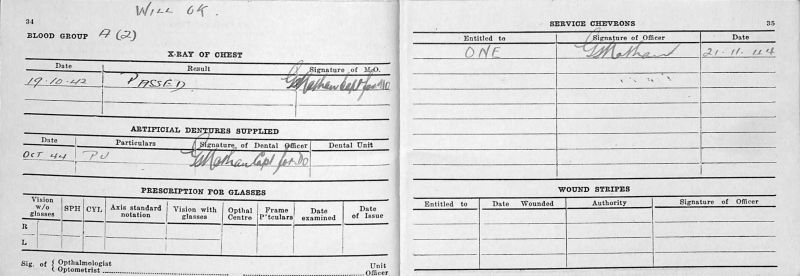 WILL OK.
34
BLOOD GROUP A (2)
X-RAY OF CHEST
Date Result Signature of M.O.
19.10.42 PASSED GMathan Capt for MO
ARTIFICIAL DENTURES SUPPLIED
Date Particulars Signature of Dental Officer Dental Unit
OCT 44 PU GMathan Capt for DO
PRESCRIPTION FOR GLASSES
Vision w/o glasses SPH CYL Axis standard notation Vision with glasses Opthal Centre Frame P'ticulars Date examined Date of Issue
R
L
Sig. of { Opthalmologist Unit
{ Optometrist Officer
35
SERVICE CHEVRONS
Entitled to Signature of Officer Date
ONE GMathan 21.11.44
WOUND STRIPES
Entitled to Date Wounded Authority Signature of Officer